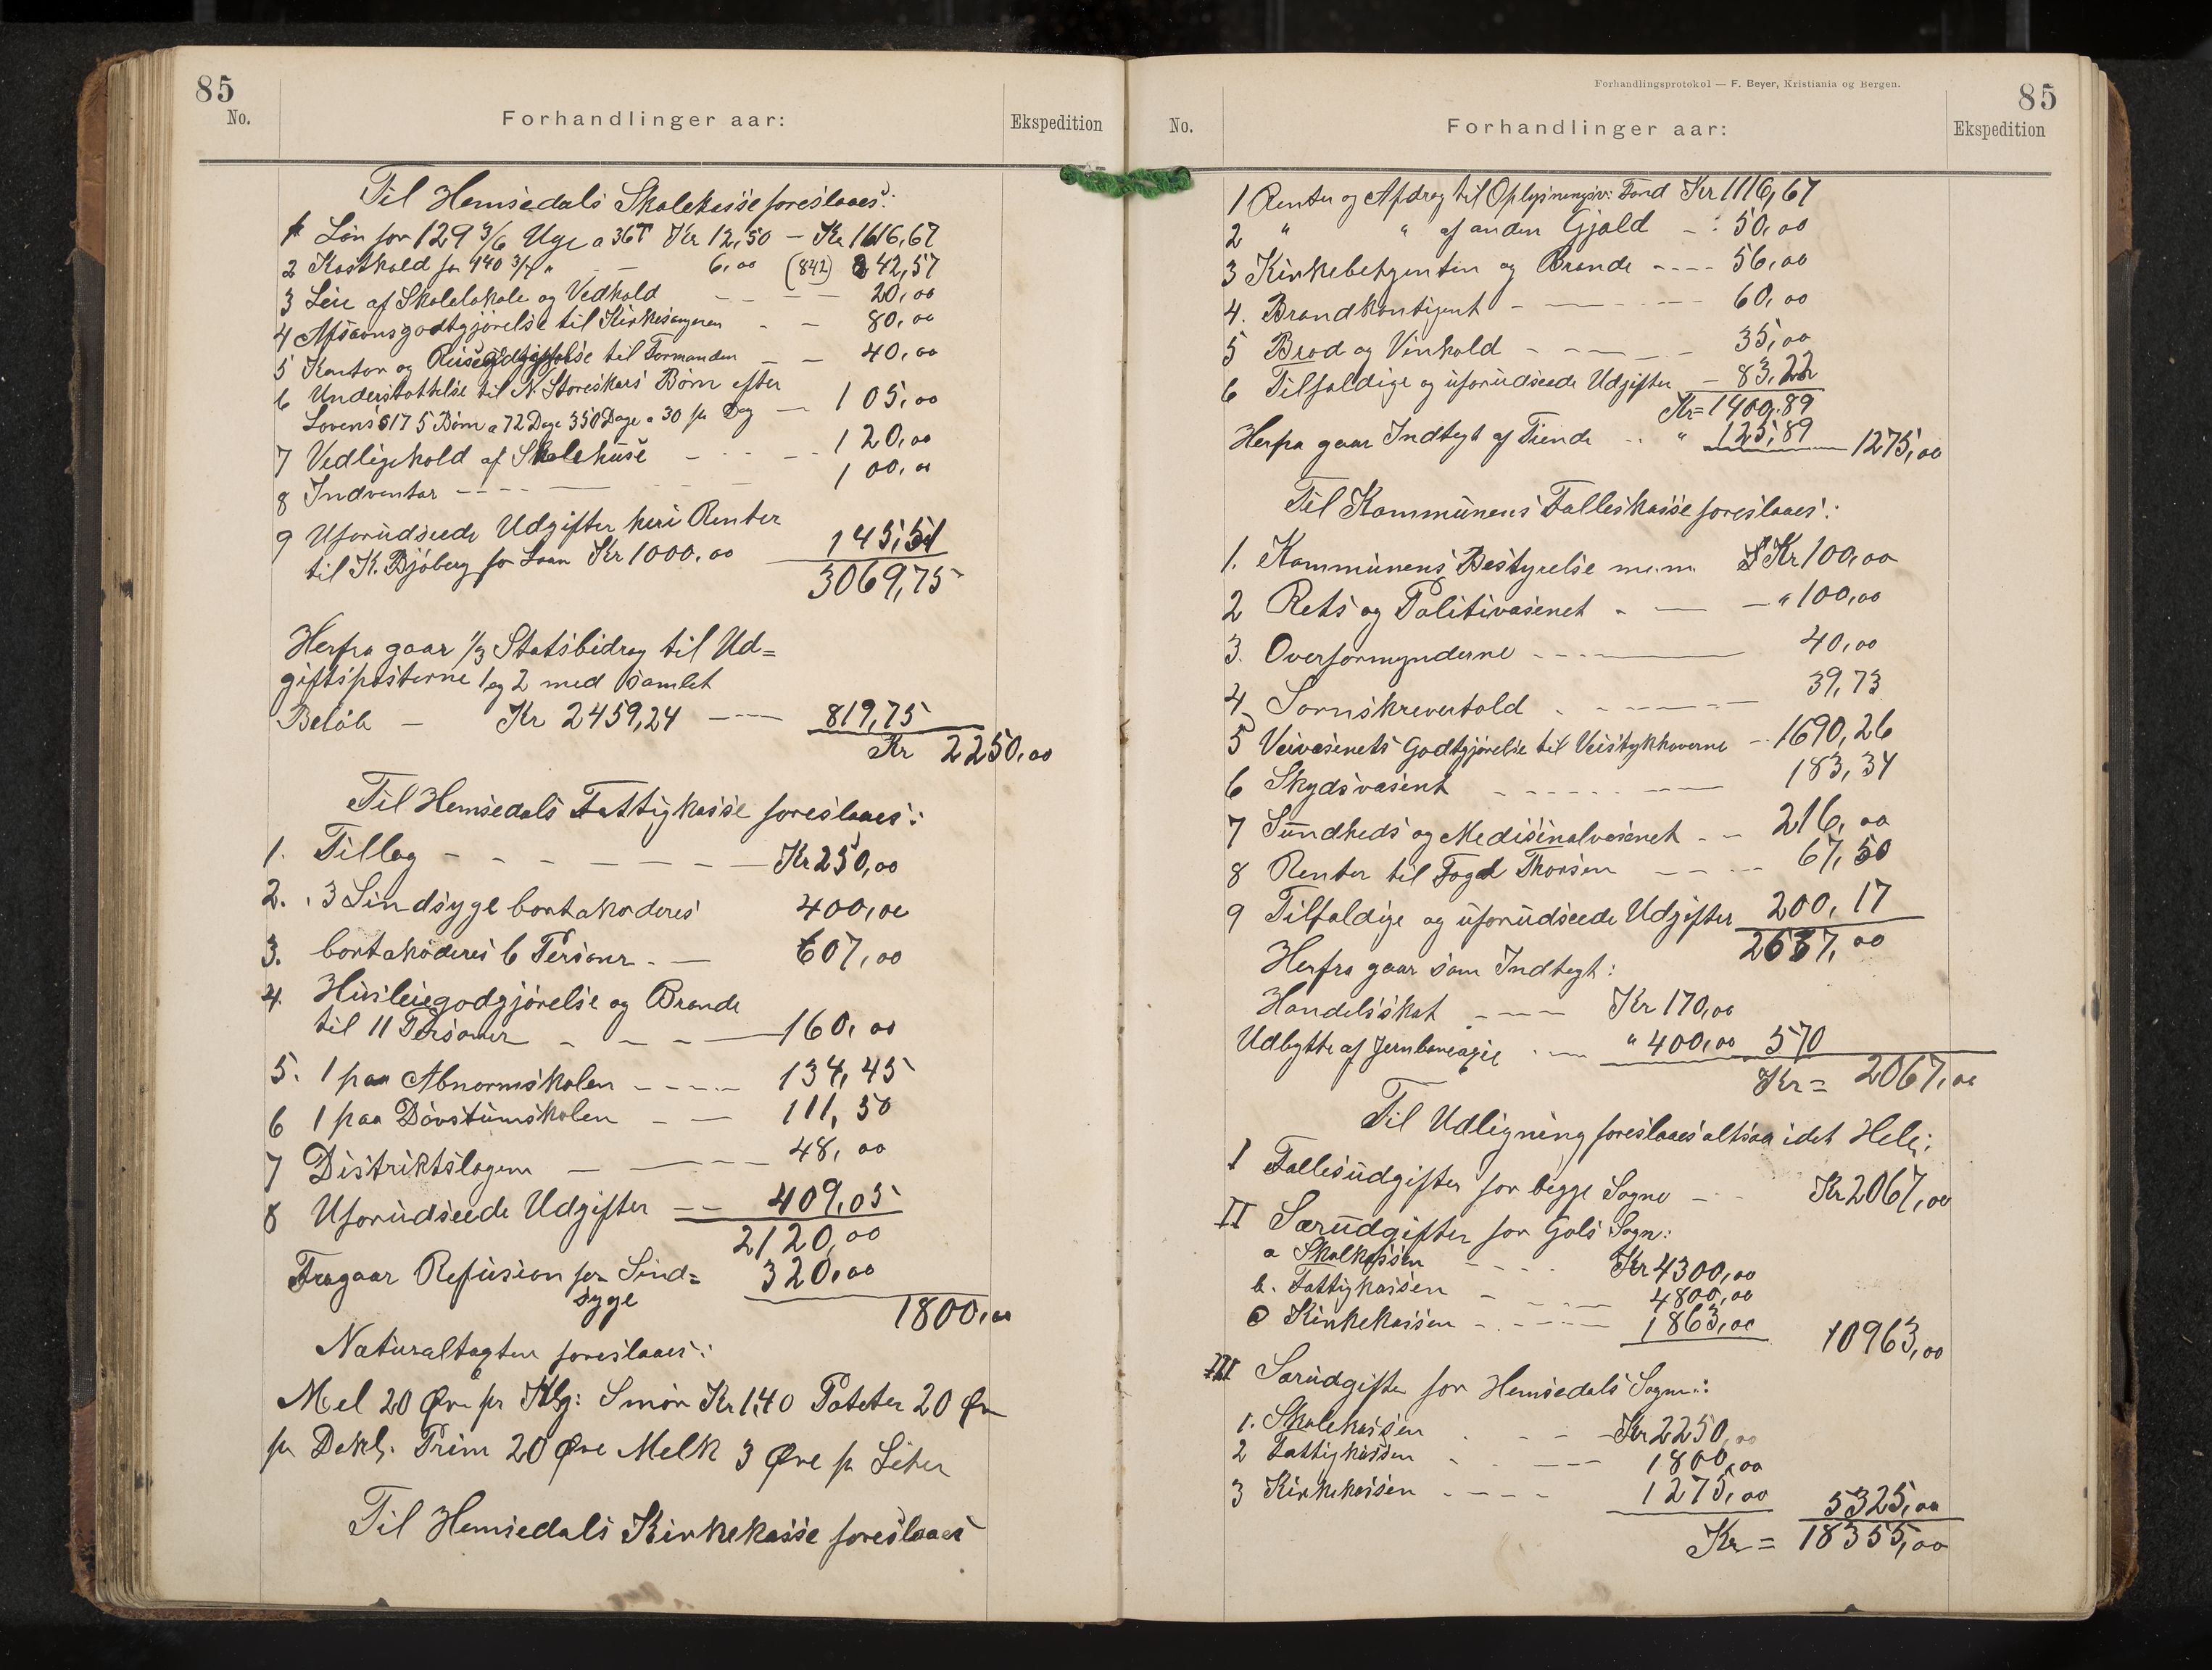 85
No. Forhandlinger aar: Ekspedition
Til Hemsedals Skolekasse foreslaaes:
1 Løn for 129 3/6 Uge a 36T Kr 12,50 – Kr 1616,67
2 Kosthold for 140 3/7 " — 6,00 (842) 842,57
3 Leie af Skolelokale og Vedhold – – – – 20,00
4 Afsavnsgodtgjørelse til Kirkesangeren – – 80,00
5 Kontor og Reisegodtgjørelse til Formanden – – 40,00
6 Understøttelse til N. Storeskars Børn efter
Lovens §17 5 Børn a 72 Dage 350 Dage a 30 pr Dag – 105,00
7 Vedligehold af Skolehuse – – – – 120,00
8 Indventar – – – – 100,00
9 Uforudseede Udgifter heri Renter
til K. Bjøberg for Laan Kr 1000,00 145,51
3069,75
Herfra gaar 1/3 Statsbidrag til Ud=
giftsposterne 1 og 2 med samlet
Beløb – Kr 2459,24 – – – 819,75
Kr 2250,00
Til Hemsedals Fattigkasse foreslaaes:
1. Tillæg – – – – – – – Kr 250,00
2. 3 Sindsyge bortakorderes 400,00
3. bortakoderes 6 Personr. – 607,00
4. Husleiegodgjørelse og Brænde
til 11 Personer – – – 160,00
5. 1 paa Abnormskolen – – – – 134,45
6 1 paa Døvstumskolen – – 111,50
7 Distriktslægen – – – – 48,00
8 Uforudseede Udgifter – – 409,05
2120,00
Fragaar Refusion for Sind= 320,00
syge
1800,00
Naturaltagten foreslaaes:
Mel 20 Øre pr Klg: Smør Kr 1,40 Poteter 20 Øre
pr Dekl. Prim 20 Øre Melk 3 Øre pr Liter
Til Hemsedals Kirkekasse foreslaaes
Forhandlingsprotokol — F. Beyer, Kristiania og Bergen.
85
No. Forhandlinger aar: Ekspedition
1 Renter og Afdrag til Oplysningsv: Fond Kr 1116,67
2 " " af anden Gjæld – : 50,00
3 Kirkebetjenten og Brænde – – – – 56,00
4. Brandkontigent – – – – – 60,00
5 Brød og Vinhold – – – – – 35,00
6 Tilfældige og uforudseede Udgifter – 83,22
Kr= 1400,89
Herfra gaar Indtægt af Tiende – – " 125,89 1275,00
Til Kommunens Fælleskasse foreslaaes:
1. Kommunens Bestyrelse m.m. Kr 100,00
2 Rets og Politivæsenet – — – " 100,00
3. Overformynderne – – – — 40,00
4 Lornskrevertold – – – – – 39,73
5 Veivæsenets Godtgjørelse til Veistykkhaverne – 1690,26
6 Skydsvæsent – – – – – 183,34
7 Sundheds og Medisinalvæsenet – – 216,00
8 Renter til Fogd Thorsen – – – – 67,50
9 Tilfældige og uforudseede Udgifter 200,17
2637,00
Herfra gaar som Indtegt:
Handelsskat – – – – Kr 170,00
Udbytte af Jernbaneaxie – – " 400,00 570
Kr= 2067,00
Til Udligning foreslaaes altsaa idet Hele:
I Fællesudgifter for begge Sogne – – Kr 2067,00
II Særudgifter for Gols Sogn:
a Skolekassen – – – – Kr 4300,00
b. Fattigkassen – – – – 4800,00
c Kirkekassen – – – – – 1863,00 10963,00
III Særudgifter for Hemsedals Sogn:
1. Skolekassen – – – Kr 2250,00
2 Fattigkassen – – – – – 1800,00
3 Kirkekassen – – – – 1275,00 5325,00
Kr= 18355,00